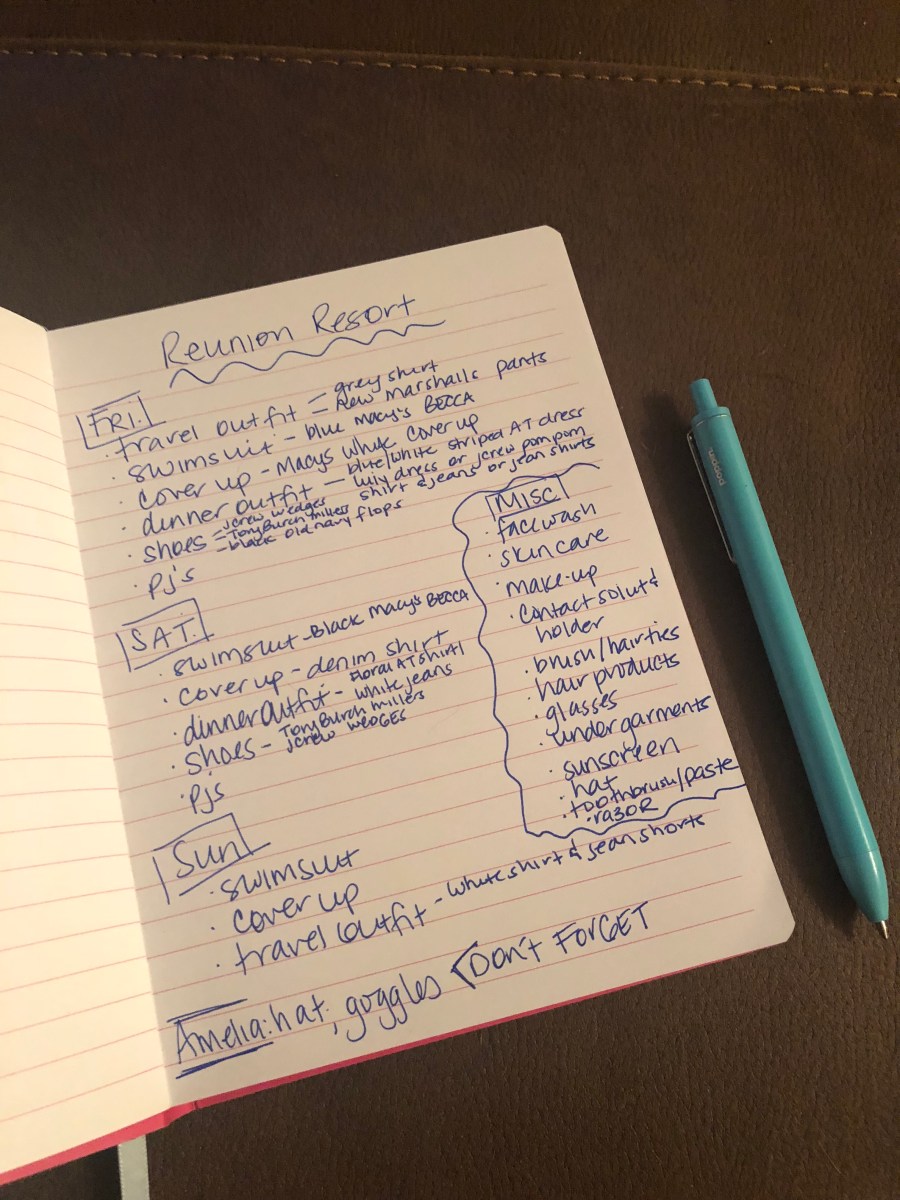 Reunion Resort
FRI.
· travel outfit = grey shirt
New Marshalls pants
· swimsuit - blue Macy's BECCA
· cover up - Macys white cover up
· dinner outfit - blue/white striped AT dress
lily dress or jcrew pom pom
shirt & jeans or jean shirts
· shoes - jcrew wedges
- Tory Burch millers
- black old navy flops
· pj's
SAT.
· swimsuit - Black Macy's BECCA
· cover up - denim shirt
· dinner outfit - floral AT shirt/
white jeans
· shoes - Tory Burch millers
jcrew WEDGES
· pjs
Sun
· swimsuit
· cover up
· travel outfit - white shirt & jean shorts
Misc
· face wash
· skin care
· make-up
· contact solut &
holder
· brush/hairties
· hair products
· glasses
· undergarments
· sunscreen
· hat
· toothbrush/paste
· razoR
Amelia: hat, goggles < DON't FORGET
poppin